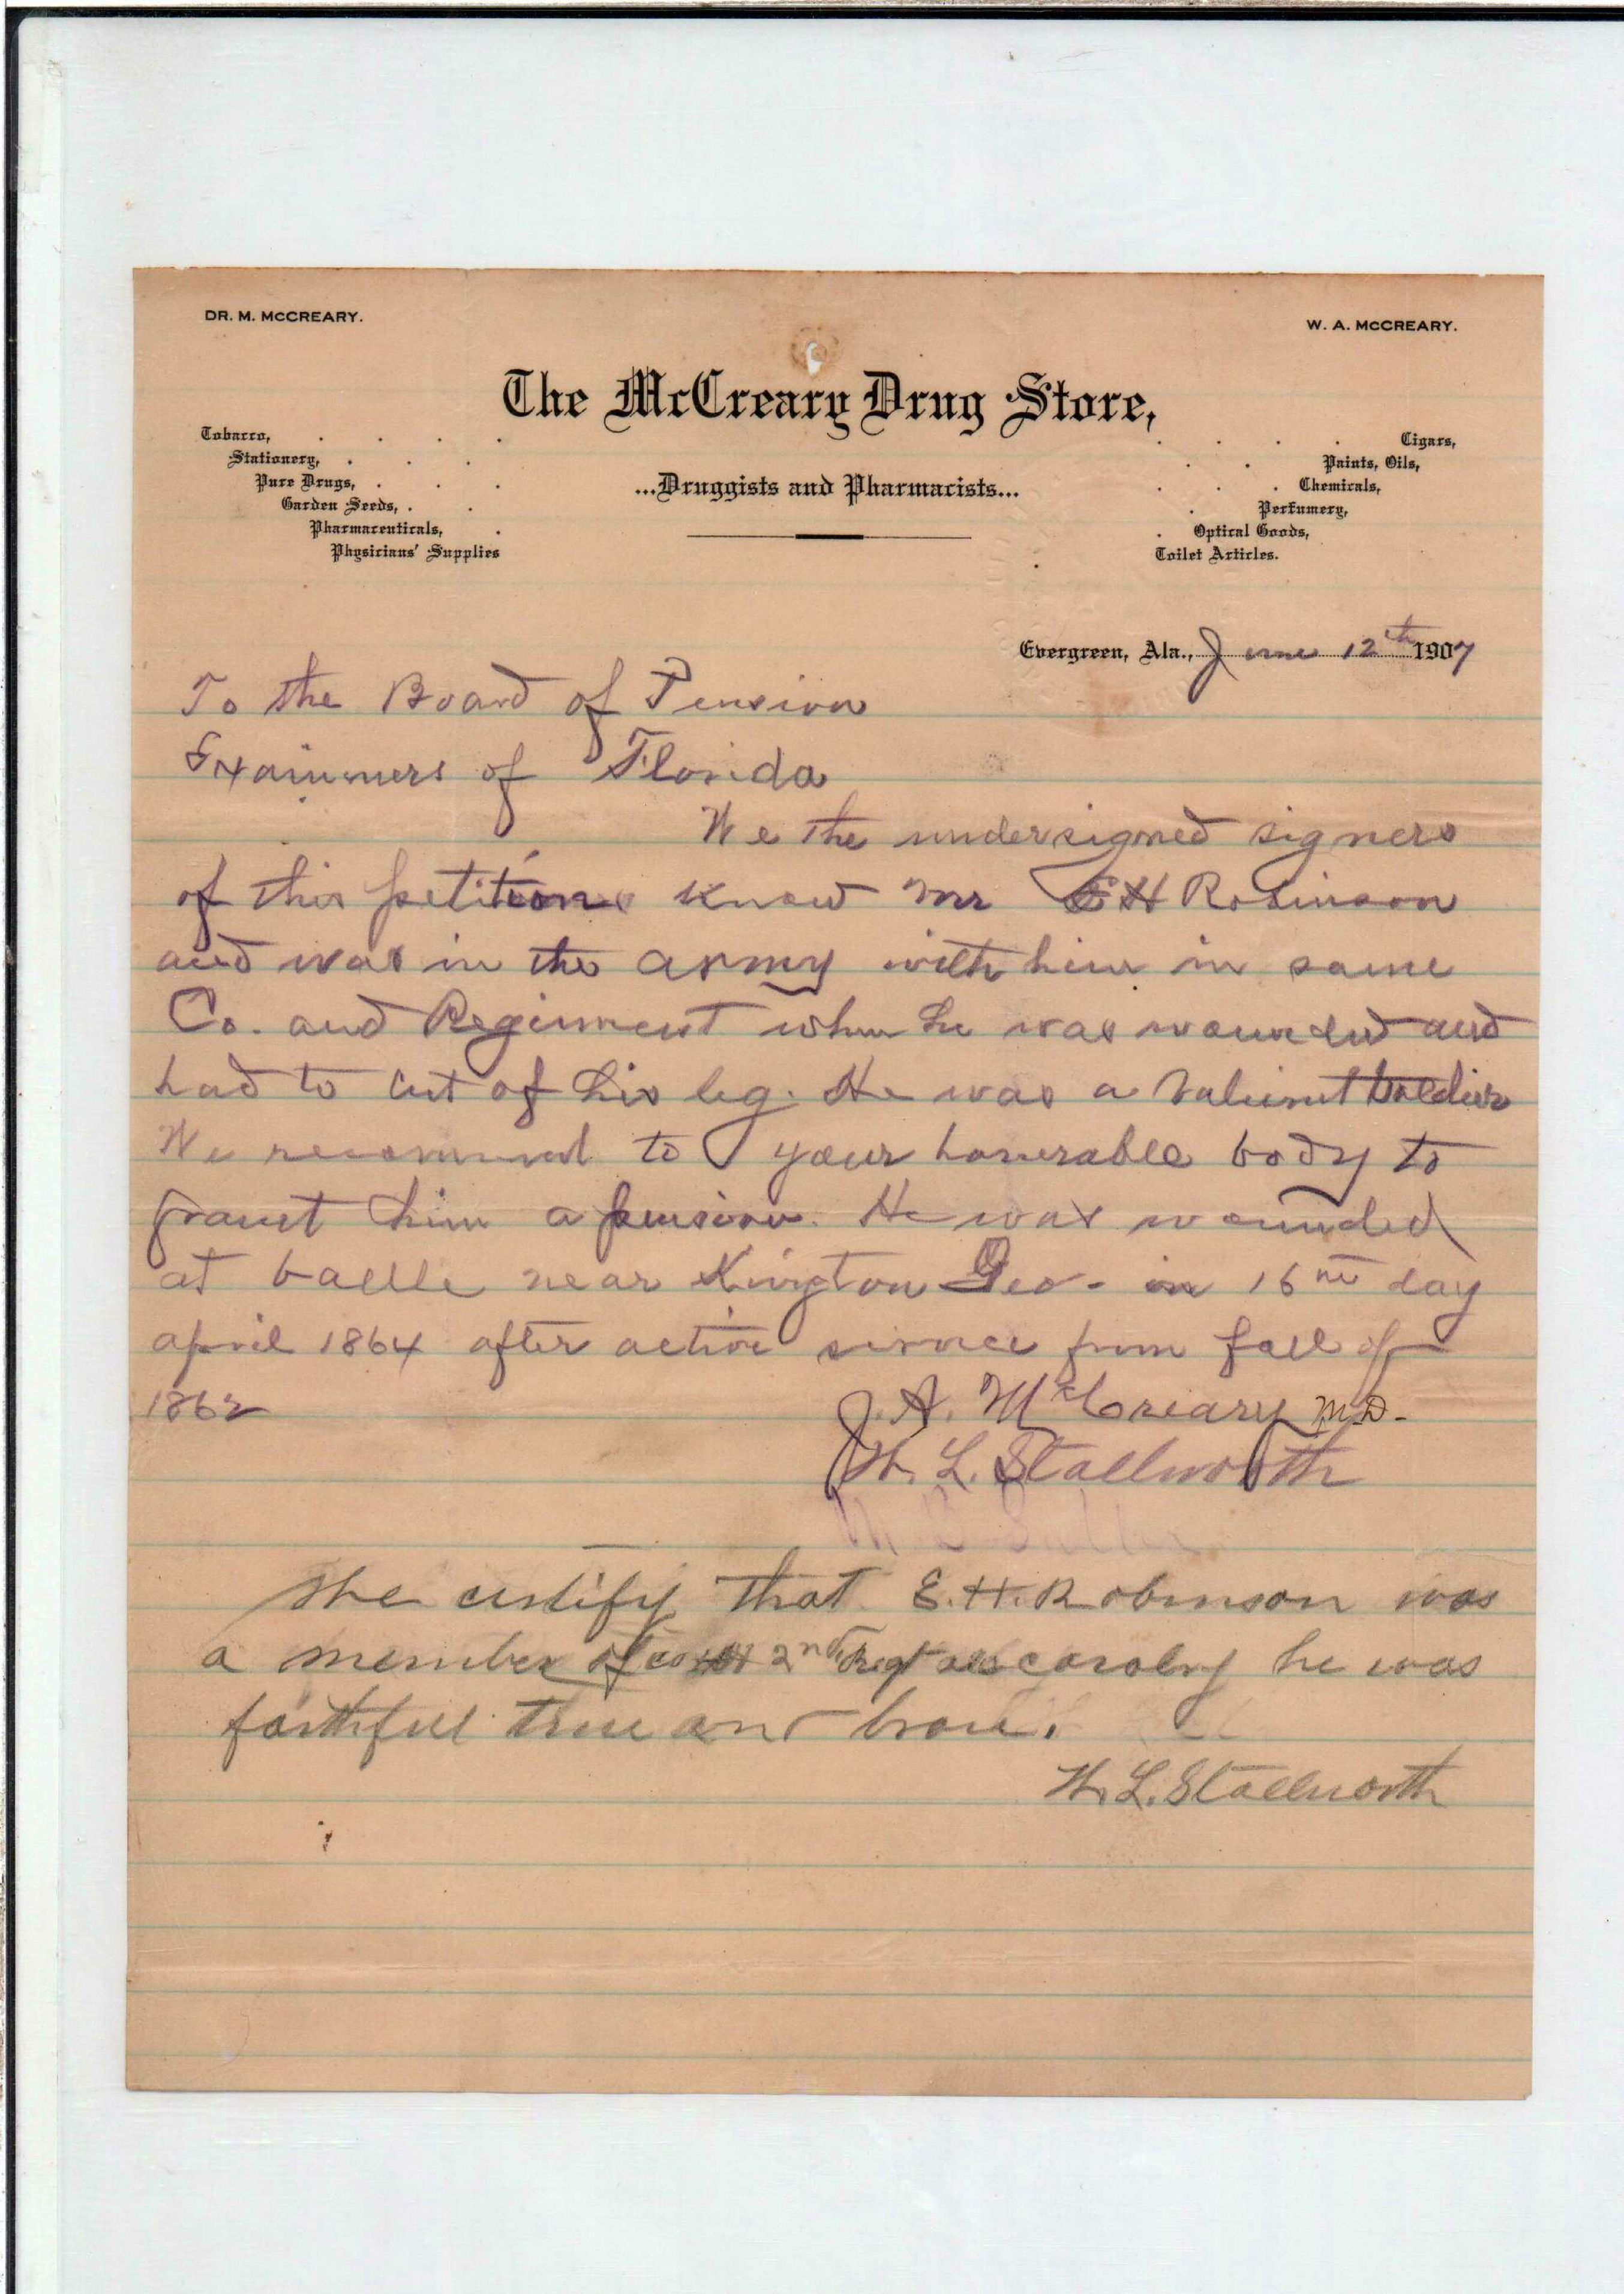 DR. M. McCREARY.
W. A. McCREARY.
The McCreary Drug Store,
...Druggists and Pharmacists...
Tobacco,
Stationery,
Pure Drugs,
Garden Seeds,
Pharmaceuticals,
Physicians' Supplies
Cigars,
Paints, Oils,
Chemicals,
Perfumery,
Optical Goods,
Toilet Articles.
Evergreen, Ala., June 12th 1907
To the Board of Pension
Examiners of Florida
We the undersigned signers
of this petition know Mr E H Robinson
and was in the army with him in same
Co. and Regiment when he was wounded and
had to cut of his leg. He was a valient soldier
We recommend to your honorable body to
grant him a pension. He was wounded
at battle near Kington Geo. in 16 day
april 1864 after active service from fall of
1862
J. A. McCreary M.D.
W. L. Stallworth
We certify that E. H. Robinson was
a member of co 2nd Regt ala cavalry he was
faithfull true and brave.
W. L. Stallworth